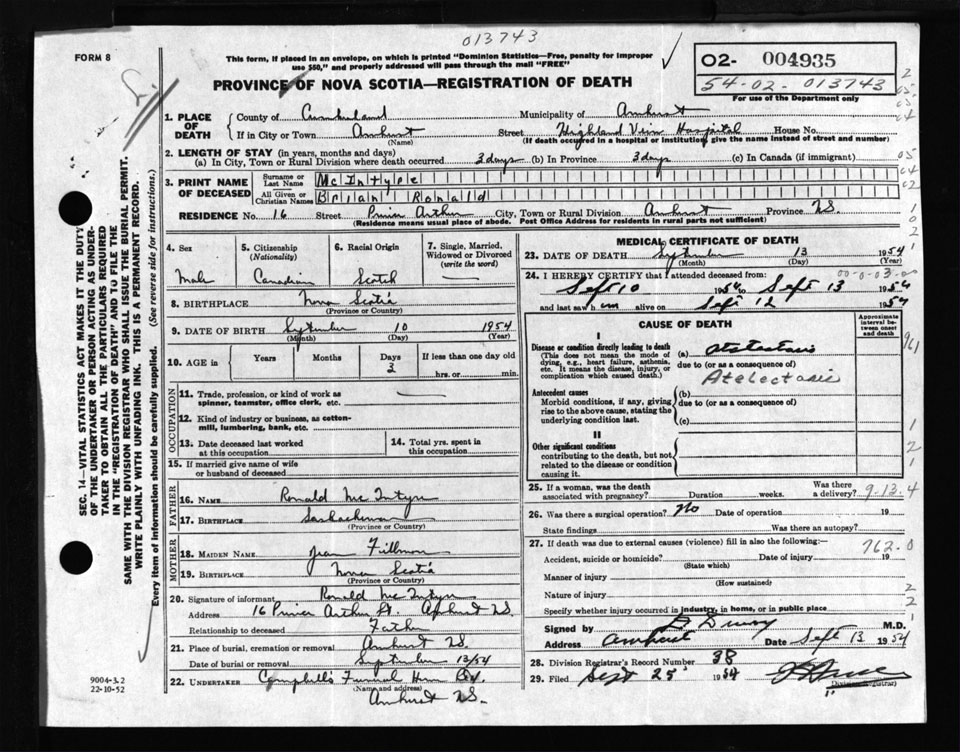 013743
FORM 8
This form, if placed in an envelope, on which is printed "Dominion Statistics—Free, penalty for improper
use $50," and properly addressed will pass through the mail "FREE"
PROVINCE OF NOVA SCOTIA—REGISTRATION OF DEATH
O2- 004935
54-02- 013743
For use of the Department only
1. PLACE OF DEATH
County of Cumberland Municipality of Amherst
If in City or Town Amherst Street Highland View Hospital House No.
(Name) (If death occurred in a hospital or institution, give the name instead of street and number)
2. LENGTH OF STAY (in years, months and days)
(a) In City, Town or Rural Division where death occurred 3 days (b) In Province 3 days (c) In Canada (if immigrant)
3. PRINT NAME OF DECEASED
Surname or Last Name McIntyre
All Given or Christian Names Brian Ronald
RESIDENCE No. 16 Street Prince Arthur City, Town or Rural Division Amherst Province N.S.
(Residence means usual place of abode. Post Office Address for residents in rural parts not sufficient)
4. Sex
Male
5. Citizenship
(Nationality)
Canadian
6. Racial Origin
Scotch
7. Single, Married, Widowed or Divorced
(write the word)
8. BIRTHPLACE Nova Scotia
(Province or Country)
9. DATE OF BIRTH September 10 1954
(Month) (Day) (Year)
10. AGE in
Years
Months
Days
3
If less than one day old
hrs. or min.
OCCUPATION
11. Trade, profession, or kind of work as
spinner, teamster, office clerk, etc.
12. Kind of industry or business, as cotten-
mill, lumbering, bank, etc.
13. Date deceased last worked
at this occupation
14. Total yrs. spent in
this occupation
15. If married give name of wife
or husband of deceased
FATHER
16. NAME Ronald McIntyre
17. BIRTHPLACE Saskachewan
(Province or Country)
MOTHER
18. MAIDEN NAME Jean Fillmore
19. BIRTHPLACE Nova Scotia
(Province or Country)
20. Signature of informant Ronald McIntyre
Address 16 Prince Arthur St. Amherst N.S.
Relationship to deceased Father
21. Place of burial, cremation or removal Amherst N.S.
Date of burial or removal September 13/54
22. UNDERTAKER Campbell's Funeral Home
(Name and address)
Amherst N.S.
MEDICAL CERTIFICATE OF DEATH
23. DATE OF DEATH September 13 1954
(Month) (Day) (Year)
24. I HEREBY CERTIFY that I attended deceased from:
00-0-03-00
Sept 10 1954 to Sept 13 1954
and last saw him alive on Sept 12 1954
CAUSE OF DEATH
Approximate interval between onset and death
I
Disease or condition directly leading to death
(This does not mean the mode of dying, e.g., heart failure, asthenia, etc. It means the disease, injury, or complication which caused death.)
(a)
due to (or as a consequence of)
Atelectasis
Antecedent causes
Morbid conditions, if any, giving rise to the above cause, stating the underlying condition last.
(b)
due to (or as a consequence of)
(c)
II
Other significant conditions
contributing to the death, but not related to the disease or condition causing it.
25. If a woman, was the death
associated with pregnancy? Duration weeks. Was there a delivery? 9.13.4
26. Was there a surgical operation? No Date of operation 19
State findings Was there an autopsy?
27. If death was due to external causes (violence) fill in also the following:—
762-0
Accident, suicide or homicide? Date of injury 19
(State which)
Manner of injury
(How sustained)
Nature of injury
Specify whether injury occurred in industry, in home, or in public place
Signed by M.D.
Address Amherst Date Sept 13 1954
28. Division Registrar's Record Number 38
29. Filed Sept 25 1954
(Division Registrar)
SEC. 14—VITAL STATISTICS ACT MAKES IT THE DUTY
OF THE UNDERTAKER OR PERSON ACTING AS UNDER-
TAKER TO OBTAIN ALL THE PARTICULARS REQUIRED
IN THE "REGISTRATION OF DEATH" AND TO FILE THE
SAME WITH THE DIVISION REGISTRAR WHO SHALL ISSUE THE BURIAL PERMIT.
WRITE PLAINLY WITH UNFADING INK. THIS IS A PERMANENT RECORD.
Every item of information should be carefully supplied. (See reverse side for instructions.)
9004-3.2
22-10-52